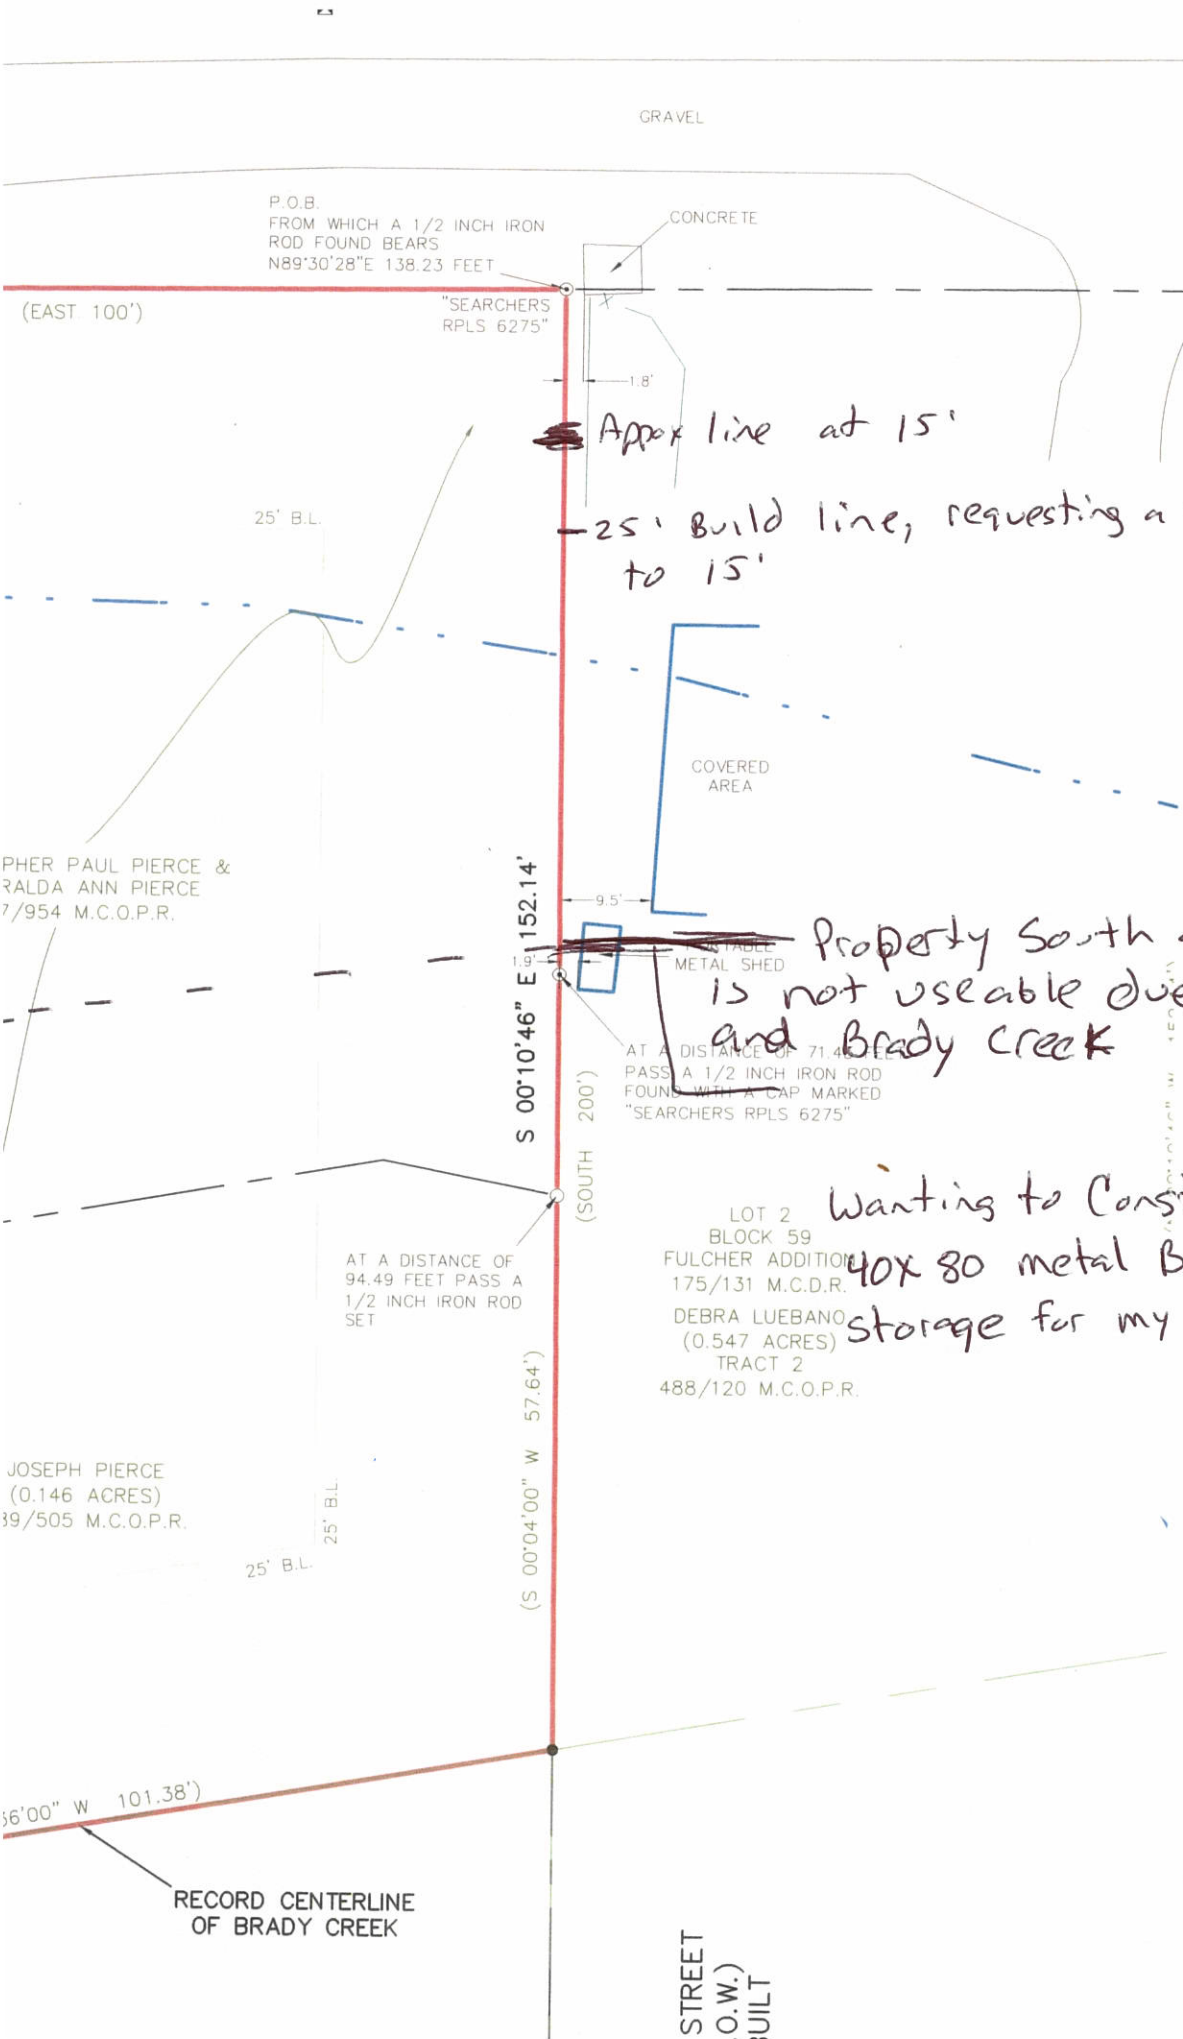 GRAVEL
P.O.B.
FROM WHICH A 1/2 INCH IRON
ROD FOUND BEARS
N89°30'28"E 138.23 FEET
CONCRETE
(EAST 100')
"SEARCHERS
RPLS 6275"
X
1.8'
Appox line at 15'
25' B.L.
25' Build line, requesting a
to 15'
COVERED
AREA
PHER PAUL PIERCE &
RALDA ANN PIERCE
7/954 M.C.O.P.R.
S 00°10'46" E 152.14'
9.5'
1.9'
METAL SHED
Property South
is not useable due
and Brady Creek
AT A DISTANCE OF 71.4
PASS A 1/2 INCH IRON ROD
FOUND WITH A CAP MARKED
"SEARCHERS RPLS 6275"
(SOUTH 200')
Wanting to Cons
40x80 metal B
storage for my
LOT 2
BLOCK 59
FULCHER ADDITION
175/131 M.C.D.R.
DEBRA LUEBANO
(0.547 ACRES)
TRACT 2
488/120 M.C.O.P.R.
AT A DISTANCE OF
94.49 FEET PASS A
1/2 INCH IRON ROD
SET
(S 00°04'00" W 57.64')
JOSEPH PIERCE
(0.146 ACRES)
39/505 M.C.O.P.R.
25' B.L.
25' B.L.
56'00" W 101.38')
RECORD CENTERLINE
OF BRADY CREEK
STREET
O.W.)
BUILT